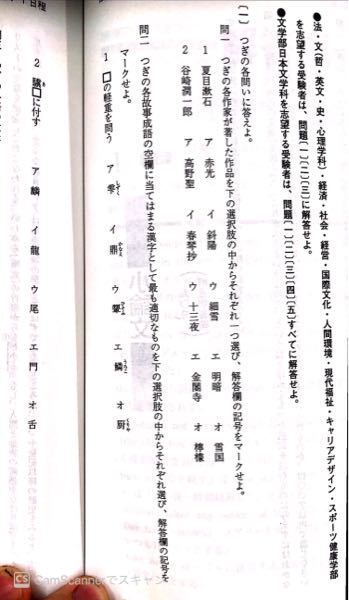 ●法・文(哲・英文・史・心理学科)・経済・社会・経営・国際文化・人間環境・現代福祉・キャリアデザイン・スポーツ健康学部
を志望する受験者は、問題〔一〕〔二〕〔三〕に解答せよ。
●文学部日本文学科を志望する受験者は、問題〔一〕〔二〕〔三〕〔四〕〔五〕すべてに解答せよ。
〔一〕 つぎの各問いに答えよ。
問一 つぎの各作家が著した作品を下の選択肢の中からそれぞれ一つ選び、解答欄の記号をマークせよ。
1 夏目漱石 ア 赤光 イ 斜陽 ウ 細雪 エ 明暗 オ 雪国
2 谷崎潤一郎 ア 高野聖 イ 春琴抄 ウ 十三夜 エ 金閣寺 オ 檸檬
問二 つぎの各故事成語の空欄に当てはまる漢字として最も適切なものを下の選択肢の中からそれぞれ選び、解答欄の記号を
マークせよ。
1 □の軽重を問う ア 雫 イ 鼎 ウ 顰 エ 鱗 オ 厨
2 驥□に付す ア 麟 イ 龍 ウ 尾 エ 門 オ 舌
日程
CS CamScannerでスキャン